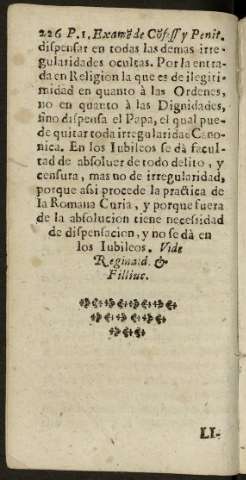 226 P. 1. Examẽ de Cõfess. y Penit.
dispensar en todas las demas irre-
gularidades ocultas. Por la entra-
da en Religion la que es de ilegiti-
midad en quanto à las Ordenes,
no en quanto à las Dignidades,
sino dispensa el Papa, el qual pue-
de quitar toda irregularidad Cano-
nica. En los Iubileos se dà facul-
tad de absoluer de todo delito, y
censura, mas no de irregularidad,
porque assi procede la practica de
la Romana Curia, y porque fuera
de la absolucion tiene necessidad
de dispensacion, y no se dà en
los Iubileos. Vide
Reginald. &
Filliuc.
LI-